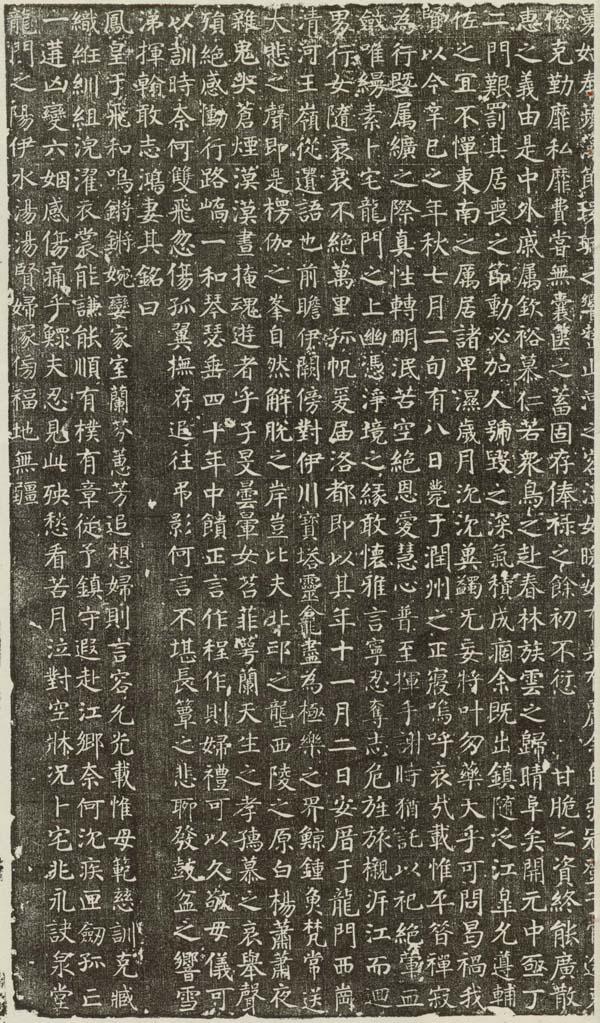 儉克勤靡私靡費嘗無囊篋之蓄固存俸祿之餘初不衍 甘脆之資終能廣散
惠之義由是中外戚属欽裕慕仁若衆鳥之赴春林族雲之歸晴阜矣開元中亟丁
二門艱罰其居喪之節動必加人號毀之深氣積成痼余既出鎮隨泛江皐允遵輔
佐之宜不憚東南之厲居諸卑濕歲月沈沈冀蠲无妄將叶勿藥大乎可問曷禍我
賢以今辛巳之年秋七月二旬有八日薨于潤州之正寢嗚呼哀㢤載惟平昝禪寂
為行曁属纊之際真性轉明泯苦空絕恩愛慧心普至揮手謝時猶託以祀絕葷血
斂唯縵素卜宅龍門之上幽憑淨境之緣敢懐雅言寧忍奪志危旌旅櫬泝江而迴
男行女隨哀哀不絕萬里孤帆爰届洛都即以其年十一月二日安厝于龍門西崗
清河王嶺從遺語也前瞻伊闕傍對伊川寳塔靈龕盡為極樂之界鯨鍾奐梵常送
大悲之聲即是楞伽之峯自然解脫之岸豈比夫北邙之壟西陵之原白楊蕭蕭夜
雜鬼哭蒼煙漠漠晝掩魂遊者乎子旻曇暈女苕菲萼蘭天生之孝孺慕之哀舉聲
殞絕感慟行路嗃一和琴瑟垂四十年中饋正言作程作則婦禮可以久敬母儀可
以訓時奈何雙飛忽傷孤翼撫存追往弔影何言不堪長簟之悲聊發鼓盆之響雪
涕揮翰敢志鴻妻其銘曰
鳳皇于飛和鳴鏘鏘婉孌家室蘭芬蕙芳追想婦則言容允光載惟母範慈訓克臧
織絍紃組浣濯衣裳能謙能順有樸有章從予鎮守遐赴江鄉奈何沈疾匣劒孤亡
一遘凶變六姻感傷痛乎鰥夫忍見此殃愁看苦月泣對空牀況卜宅兆永訣泉堂
龍門之陽伊水湯湯賢婦冢傍福地無疆